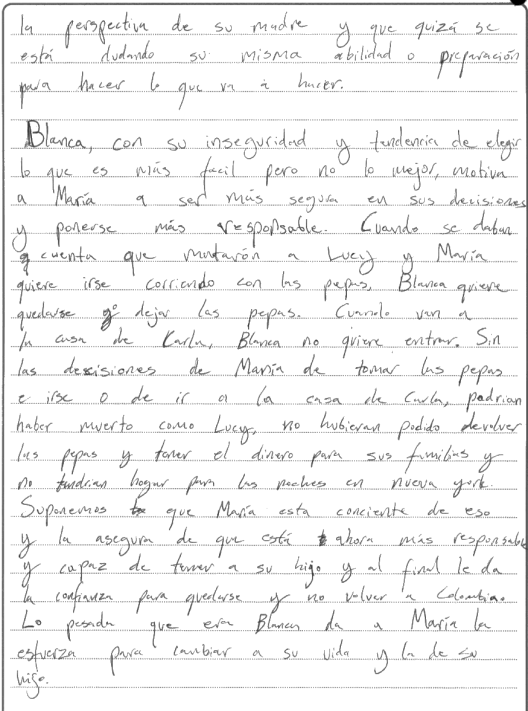 la perspectiva de su madre y que quizá se
está dudando su misma abilidad o preparación
para hacer lo que va a hacer.
Blanca, con su inseguridad y tendencia de elegir
lo que es más facil pero no lo mejor, motiva
a María a ser más segura en sus decisiones
y ponerse más responsable. Cuando se daban
cuenta que matarón a Lucy y María
quiere irse corriendo con las pepas, Blanca quiere
quedarse y dejar las pepas. Cuando van a
la casa de Carla, Blanca no quiere entrar. Sin
las desisiones de María de tomar las pepas
e irse o de ir a la casa de Carla, podrian
haber muerto como Lucy, no hubieran podido devolver
las pepas y tener el dinero para sus familias y
no tendrian hogar para las noches en nueva york.
Suponemos que María esta conciente de eso
y la asegura de que está ahora más responsable
y capaz de tener a su hijo y al final le da
la confianza para quedarse y no volver a Colombia.
Lo pesada que era Blanca da a María la
esfuerza para cambiar a su vida y la de su
hijo.